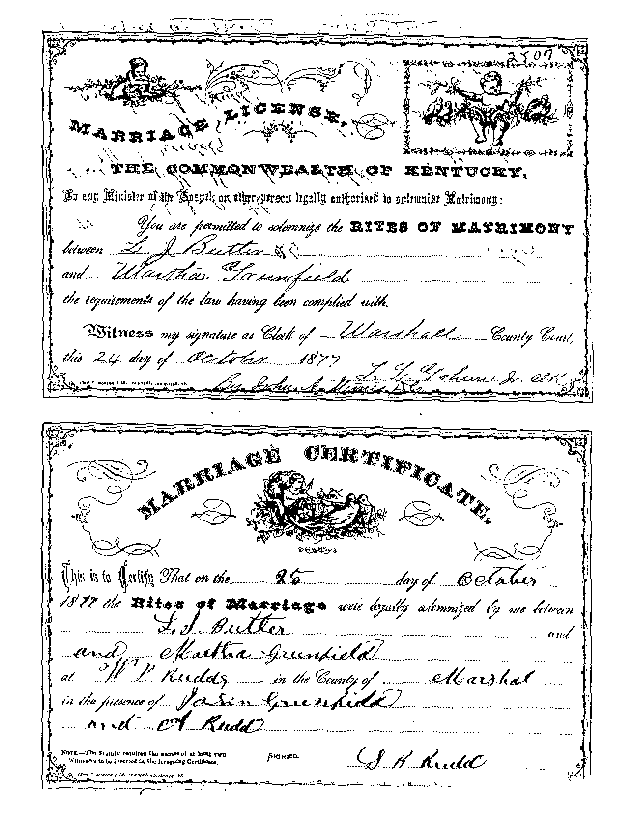 2507
MARRIAGE LICENSE,
THE COMMONWEALTH OF KENTUCKY,
To any Minister of the Gospel, or other person legally authorized to solemnize Matrimony:
You are permitted to solemnize the RITES OF MATRIMONY
between L J Butler
and Martha Greenfield
the requirements of the law having been complied with.
Witness my signature as Clerk of Marshall County Court,
this 24 day of October 1877
Jr. Clk
By
MARRIAGE CERTIFICATE.
This is to Certify That on the 25 day of October
1877 the Rites of Marriage were legally solemnized by me between
L. J. Butler and
and Martha Greenfield
at W P Rudds in the County of Marshal
in the presence of Jasin Greenfield
and A Rudd
NOTE.—The Statute requires the names of at least two
Witnesses to be inserted in the foregoing Certificate.
SIGNED S R Rudd